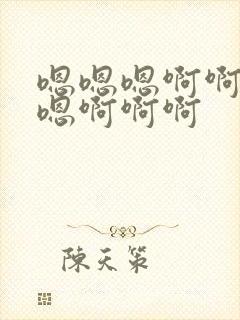 嗯嗯嗯啊啊
嗯啊啊啊
陳天策